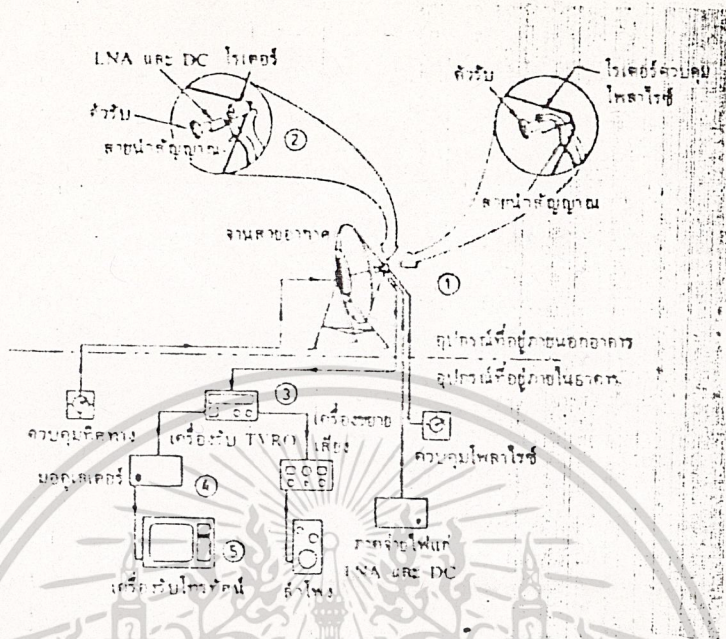 LNA และ DC โรเตอร์
ตัวรับ
สายนำสัญญาณ
②
ตัวรับ
โรเตอร์ควบคุม
โพลาไรซ์
สายนำสัญญาณ
จานสายอากาศ
①
อุปกรณ์ที่อยู่ภายนอกอาคาร
อุปกรณ์ที่อยู่ภายในอาคาร
③
ควบคุมทิศทาง
เครื่องรับ TVRO
เครื่องขยาย
เสียง
ควบคุมโพลาไรซ์
มอดูเลเตอร์
④
⑤
เครื่องรับโทรทัศน์
ลำโพง
ภาคจ่ายไฟแก่
LNA และ DC